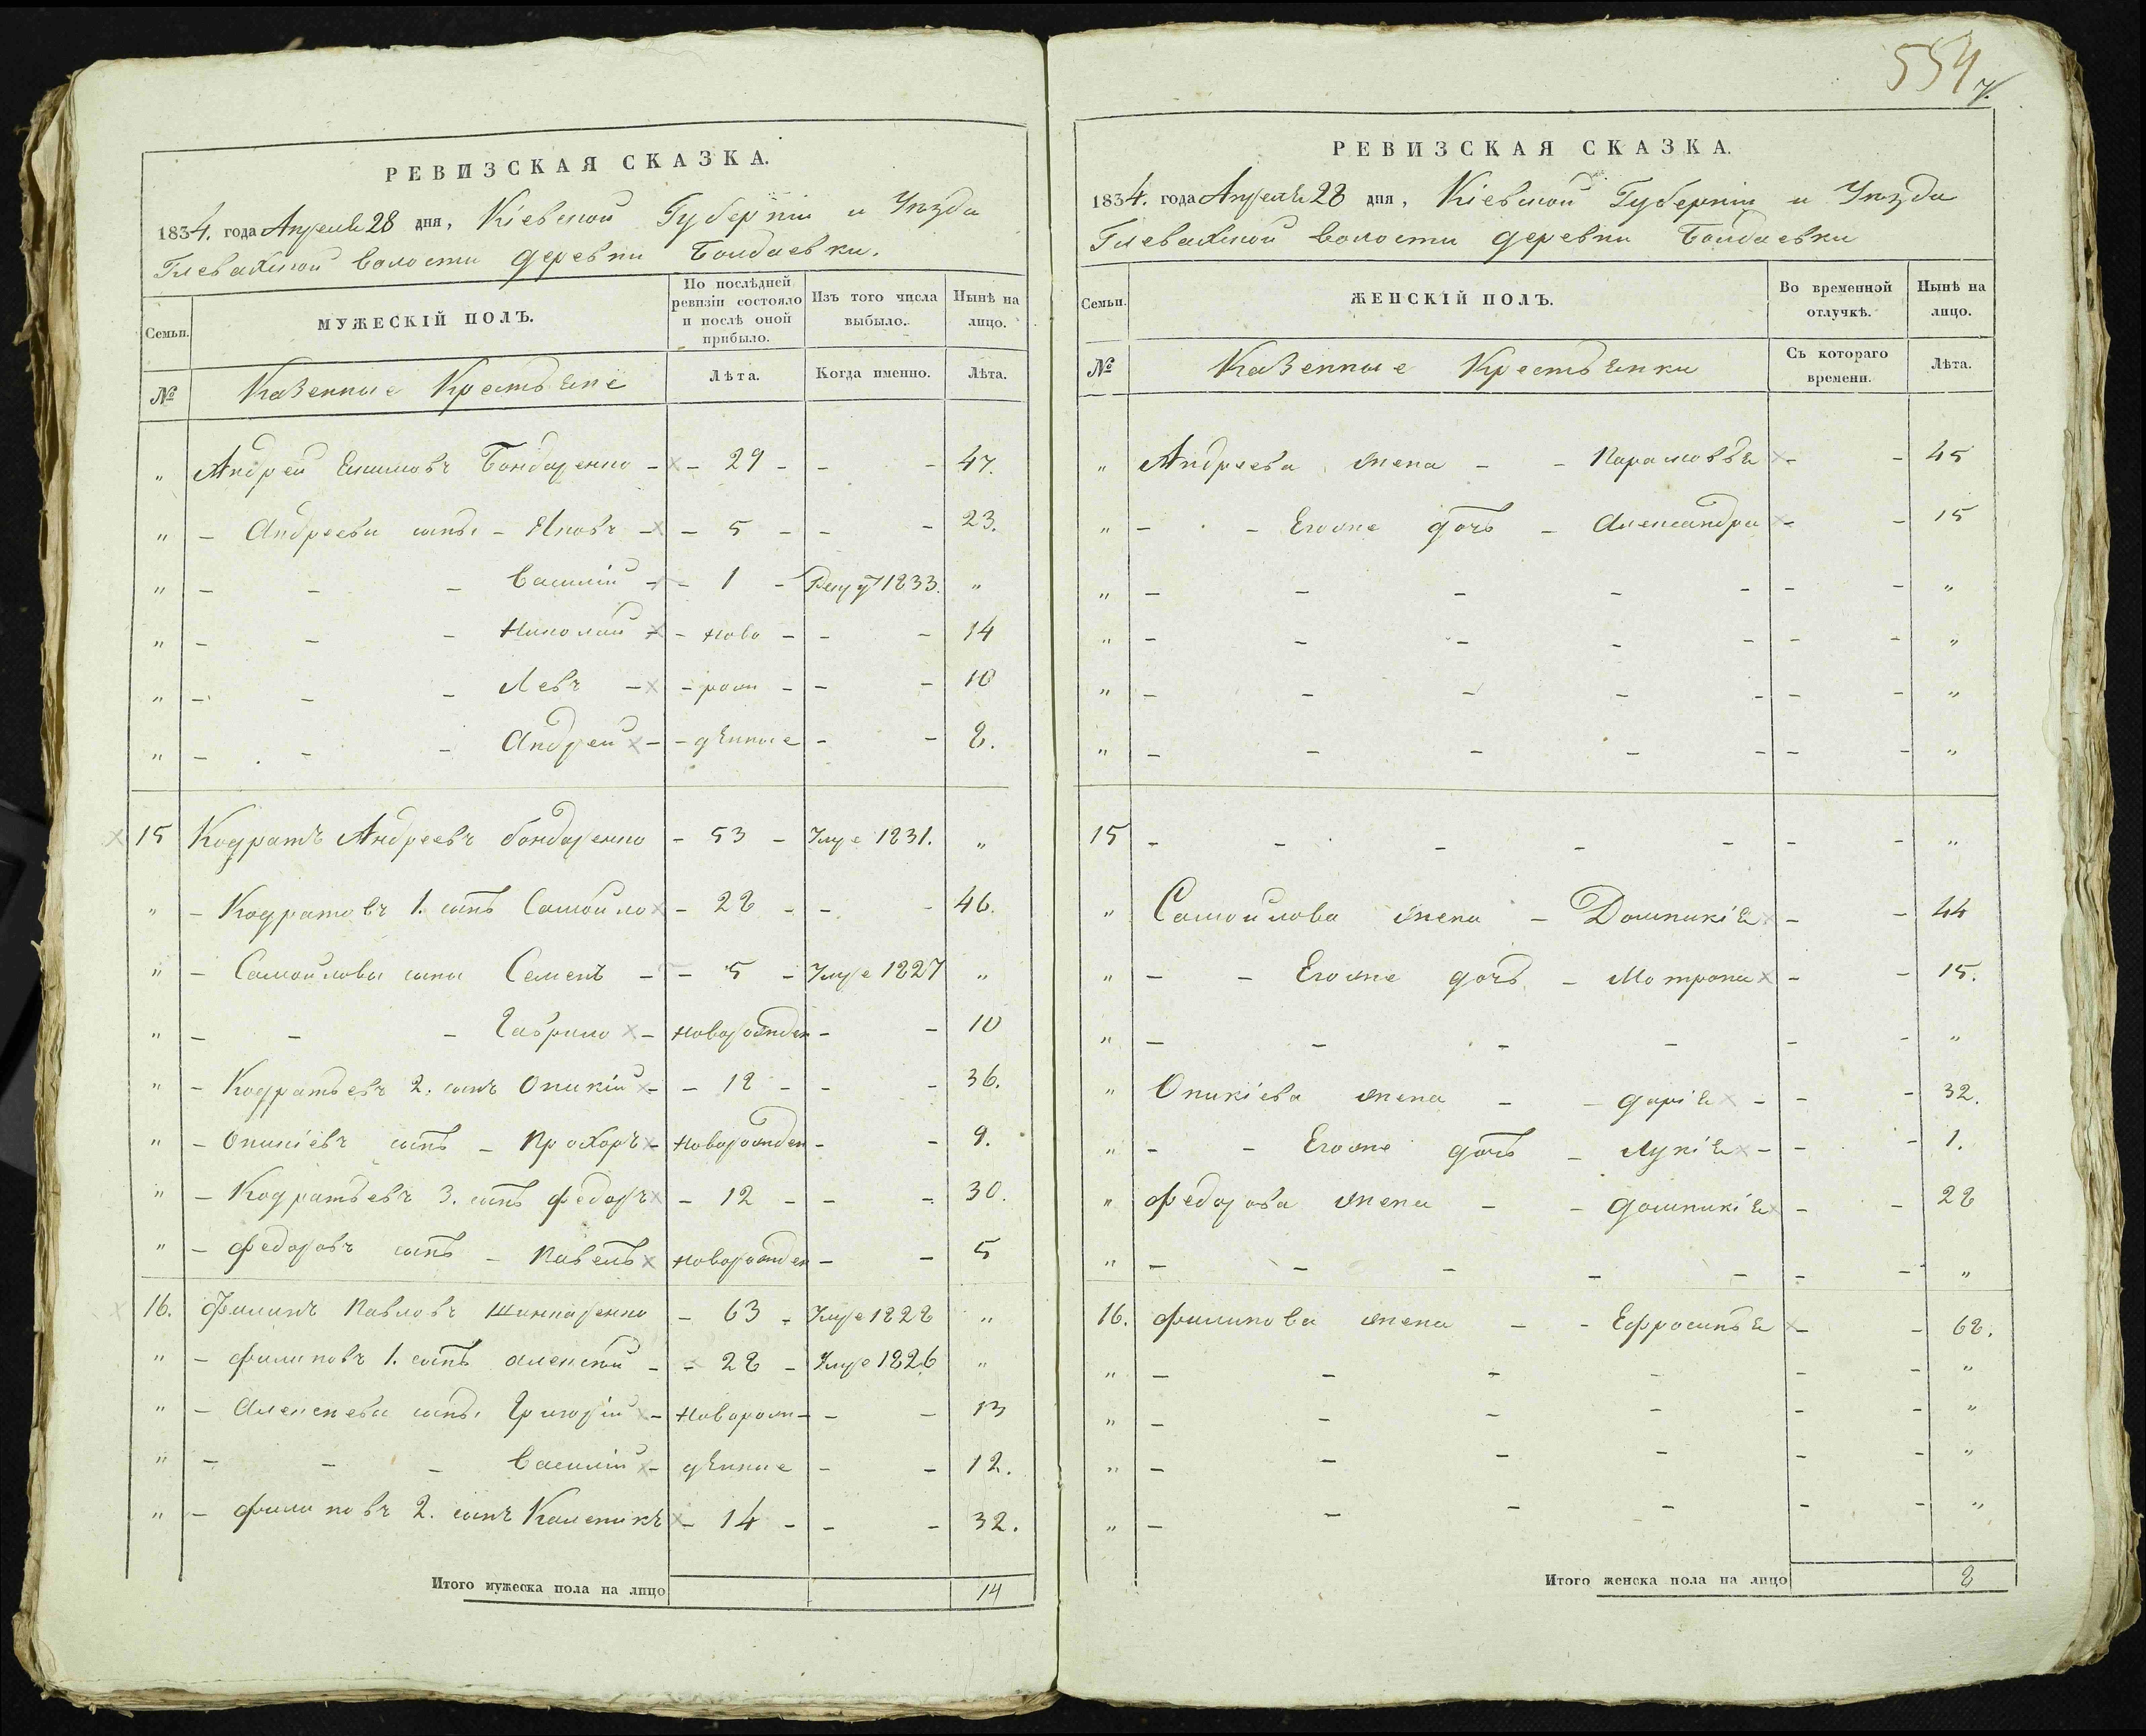 554
РЕВИЗСКАЯ СКАЗКА.
1834. года Апреля 28 дня, Кіевской Губерніи и Уѣзда
Глевахской волости деревни Болдаевки.
Семьи.
МУЖЕСКІЙ ПОЛЪ.
По послѣдней ревизіи состояло и послѣ оной прибыло.
Изъ того числа выбыло.
Нынѣ на лицо.
№
Казенные Крестьяне
Лѣта.
Когда именно.
Лѣта.
" Андрей Екимовъ Бондаренко - - 29 - - - 47.
" - Андреевы сынъ - Яковъ - - 5 - - - 23.
" - - - Василій - - 1 - Рекрут 1833. "
" - - - Николай - - Ново - - - 14
" - - - Левъ - - рож - - - 10
" - - - Андрей - - дѣнные - - 8.
15 Кодратъ Андреевъ бондаренко - 53 - Умре 1831. "
" - Кодратовъ 1. сынъ Самойло - 28 - - - 46.
" - Самойловы сыны Семенъ - - 5 - Умре 1827 "
" - - - Гаврило - новорожден - - 10
" - Кодратьевъ 2. сынъ Оникій - - 18 - - - 36.
" - Оникіевъ сынъ - Прохоръ - новорожден - - 9.
" - Кодратьевъ 3. сынъ Федоръ - 12 - - - 30.
" - Федоровъ сынъ - Павелъ новорожден - - 5
16. Филипъ Павловъ Шинкаренко - 63 - Умре 1828 "
" - Филиповъ 1. сынъ алексѣй - - 28 - Умре 1826 "
" - Алексеевы сынъ Григорій - новорож - - - 13
" - - - Василій - дѣнные - - 12.
" - Филиповъ 2. сынъ Каленикъ - 14 - - - 32.
Итого мужеска пола на лицо 14
РЕВИЗСКАЯ СКАЗКА.
1834. года Апреля 28 дня, Кіевской Губерніи и Уѣзда
Глевахской волости деревни Болдаевки
Семьи.
ЖЕНСКІЙ ПОЛЪ.
Во временной отлучкѣ.
Нынѣ на лицо.
№
Казенные Крестьянки
Съ котораго времени.
Лѣта.
" Андреева жена - - Парасковья - - 45
" - - Егожне дочь - Александра - - 15
" - - - - - - - "
" - - - - - - - "
" - - - - - - - "
" - - - - - - - "
15 - - - - - - - "
" Самойлова жена - Домникія - - 44
" - - Егожне дочь - Мотрона - - 15.
" - - - - - - "
" Оникіева жена - - дарія - - - 32.
" - - Егожне дочь - Лукія - - - 1.
" Федорова жена - - домникія - - 28
" - - - - - - - "
16. Филипова жена - - Ефросинья - - 68.
" - - - - - - "
" - - - - - - "
" - - - - - - "
" - - - - - - "
Итого женска пола на лицо 8